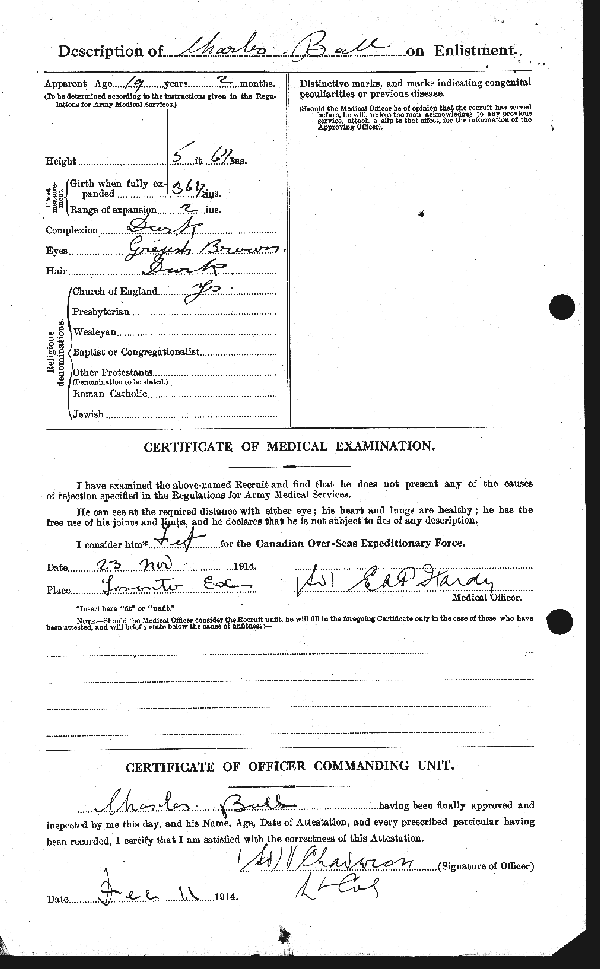 Description of Charles Ball on Enlistment.
Apparent Age 19 years 2 months.
(To be determined according to the instructions given in the Regulations for Army Medical Services.)
Height 5 ft. 6½ ins.
Chest measurement.
Girth when fully expanded 36½ ins.
Range of expansion 2 ins.
Complexion Dark
Eyes Greyish Brown
Hair Dark
Religious denominations.
Church of England Yes
Presbyterian
Wesleyan
Baptist or Congregationalist
Other Protestants
(Denomination to be stated.)
Roman Catholic
Jewish
Distinctive marks, and marks indicating congenital
peculiarities or previous disease.
(Should the Medical Officer be of opinion that the recruit has served
before, he will, unless the man acknowledges to any previous
service, attach a slip to that effect, for the information of the
Approving Officer).
CERTIFICATE OF MEDICAL EXAMINATION.
I have examined the above-named Recruit and find that he does not present any of the causes
of rejection specified in the Regulations for Army Medical Services.
He can see at the required distance with either eye; his heart and lungs are healthy; he has the
free use of his joints and limbs, and he declares that he is not subject to fits of any description.
I consider him* Fit for the Canadian Over-Seas Expeditionary Force.
Date 23 Nov 1914.
Place Toronto Ex
Hardy
Medical Officer.
*Insert here "fit" or "unfit."
NOTE.—Should the Medical Officer consider the Recruit unfit, he will fill in the foregoing Certificate only in the case of those who have
been attested, and will briefly state below the cause of unfitness:—
CERTIFICATE OF OFFICER COMMANDING UNIT.
Charles Ball having been finally approved and
inspected by me this day, and his Name, Age, Date of Attestation, and every prescribed particular having
been recorded, I certify that I am satisfied with the correctness of this Attestation.
(Signature of Officer)
Lt Col
Date Dec 11 1914.